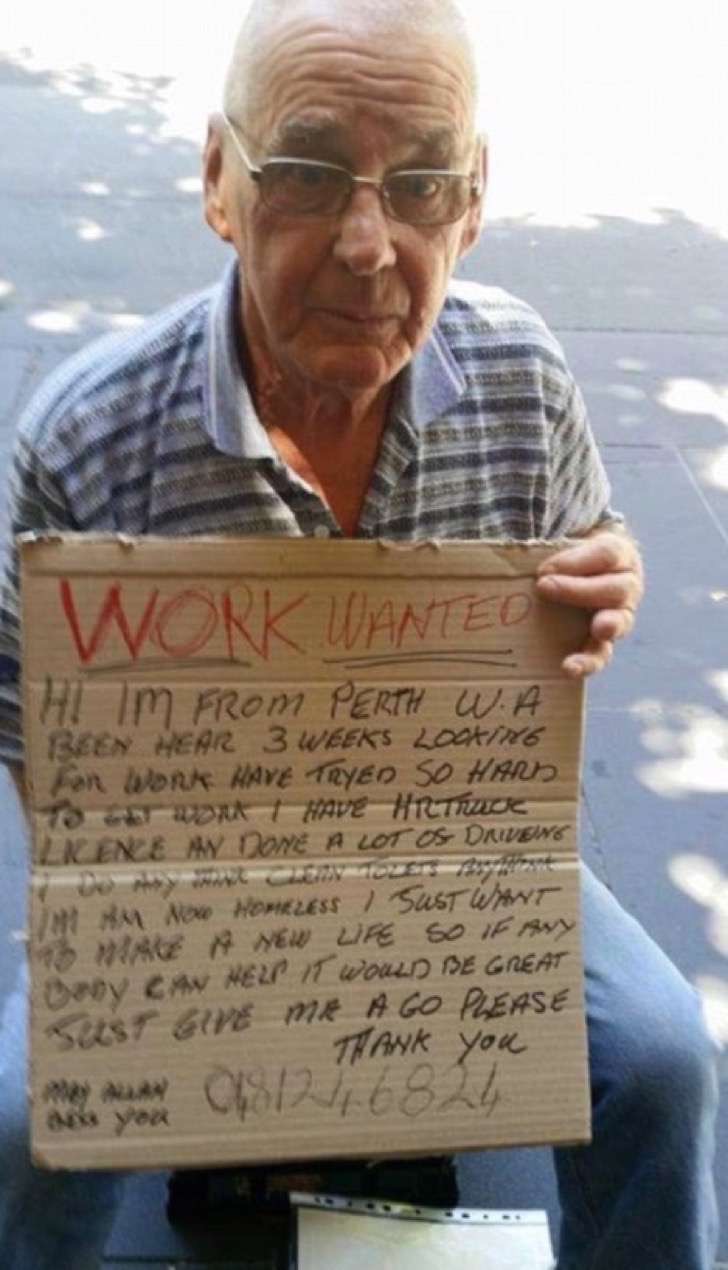 WORK WANTED
HI IM FROM PERTH W.A
BEEN HEAR 3 WEEKS LOOKING
FOR WORK HAVE TRYED SO HARD
TO GET WORK I HAVE HR TRUCK
LICENCE AN DONE A LOT OS DRIVEING
I DO ANY THINK CLEAN TOLETS ANYTHINK
IM AM NOW HOMELESS I JUST WANT
TO MAKE A NEW LIFE SO IF ANY
BODY CAN HELP IT WOULD BE GREAT
JUST GIVE ME A GO PLEASE
THANK YOU
MAY ALLAH
BESS YOU